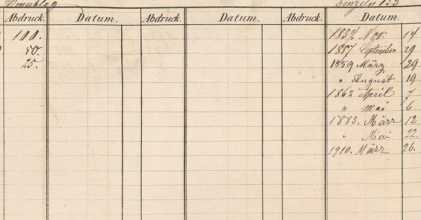 Abdruck. Datum. Abdruck. Datum. Abdruck. Datum.
100. 1857 Nov. 14
50. 1877 September 29
25. 1859 März 29
" August 19
1862 April 7
" Mai 6
1883. März 12
" Mai 22
1910. März 26.